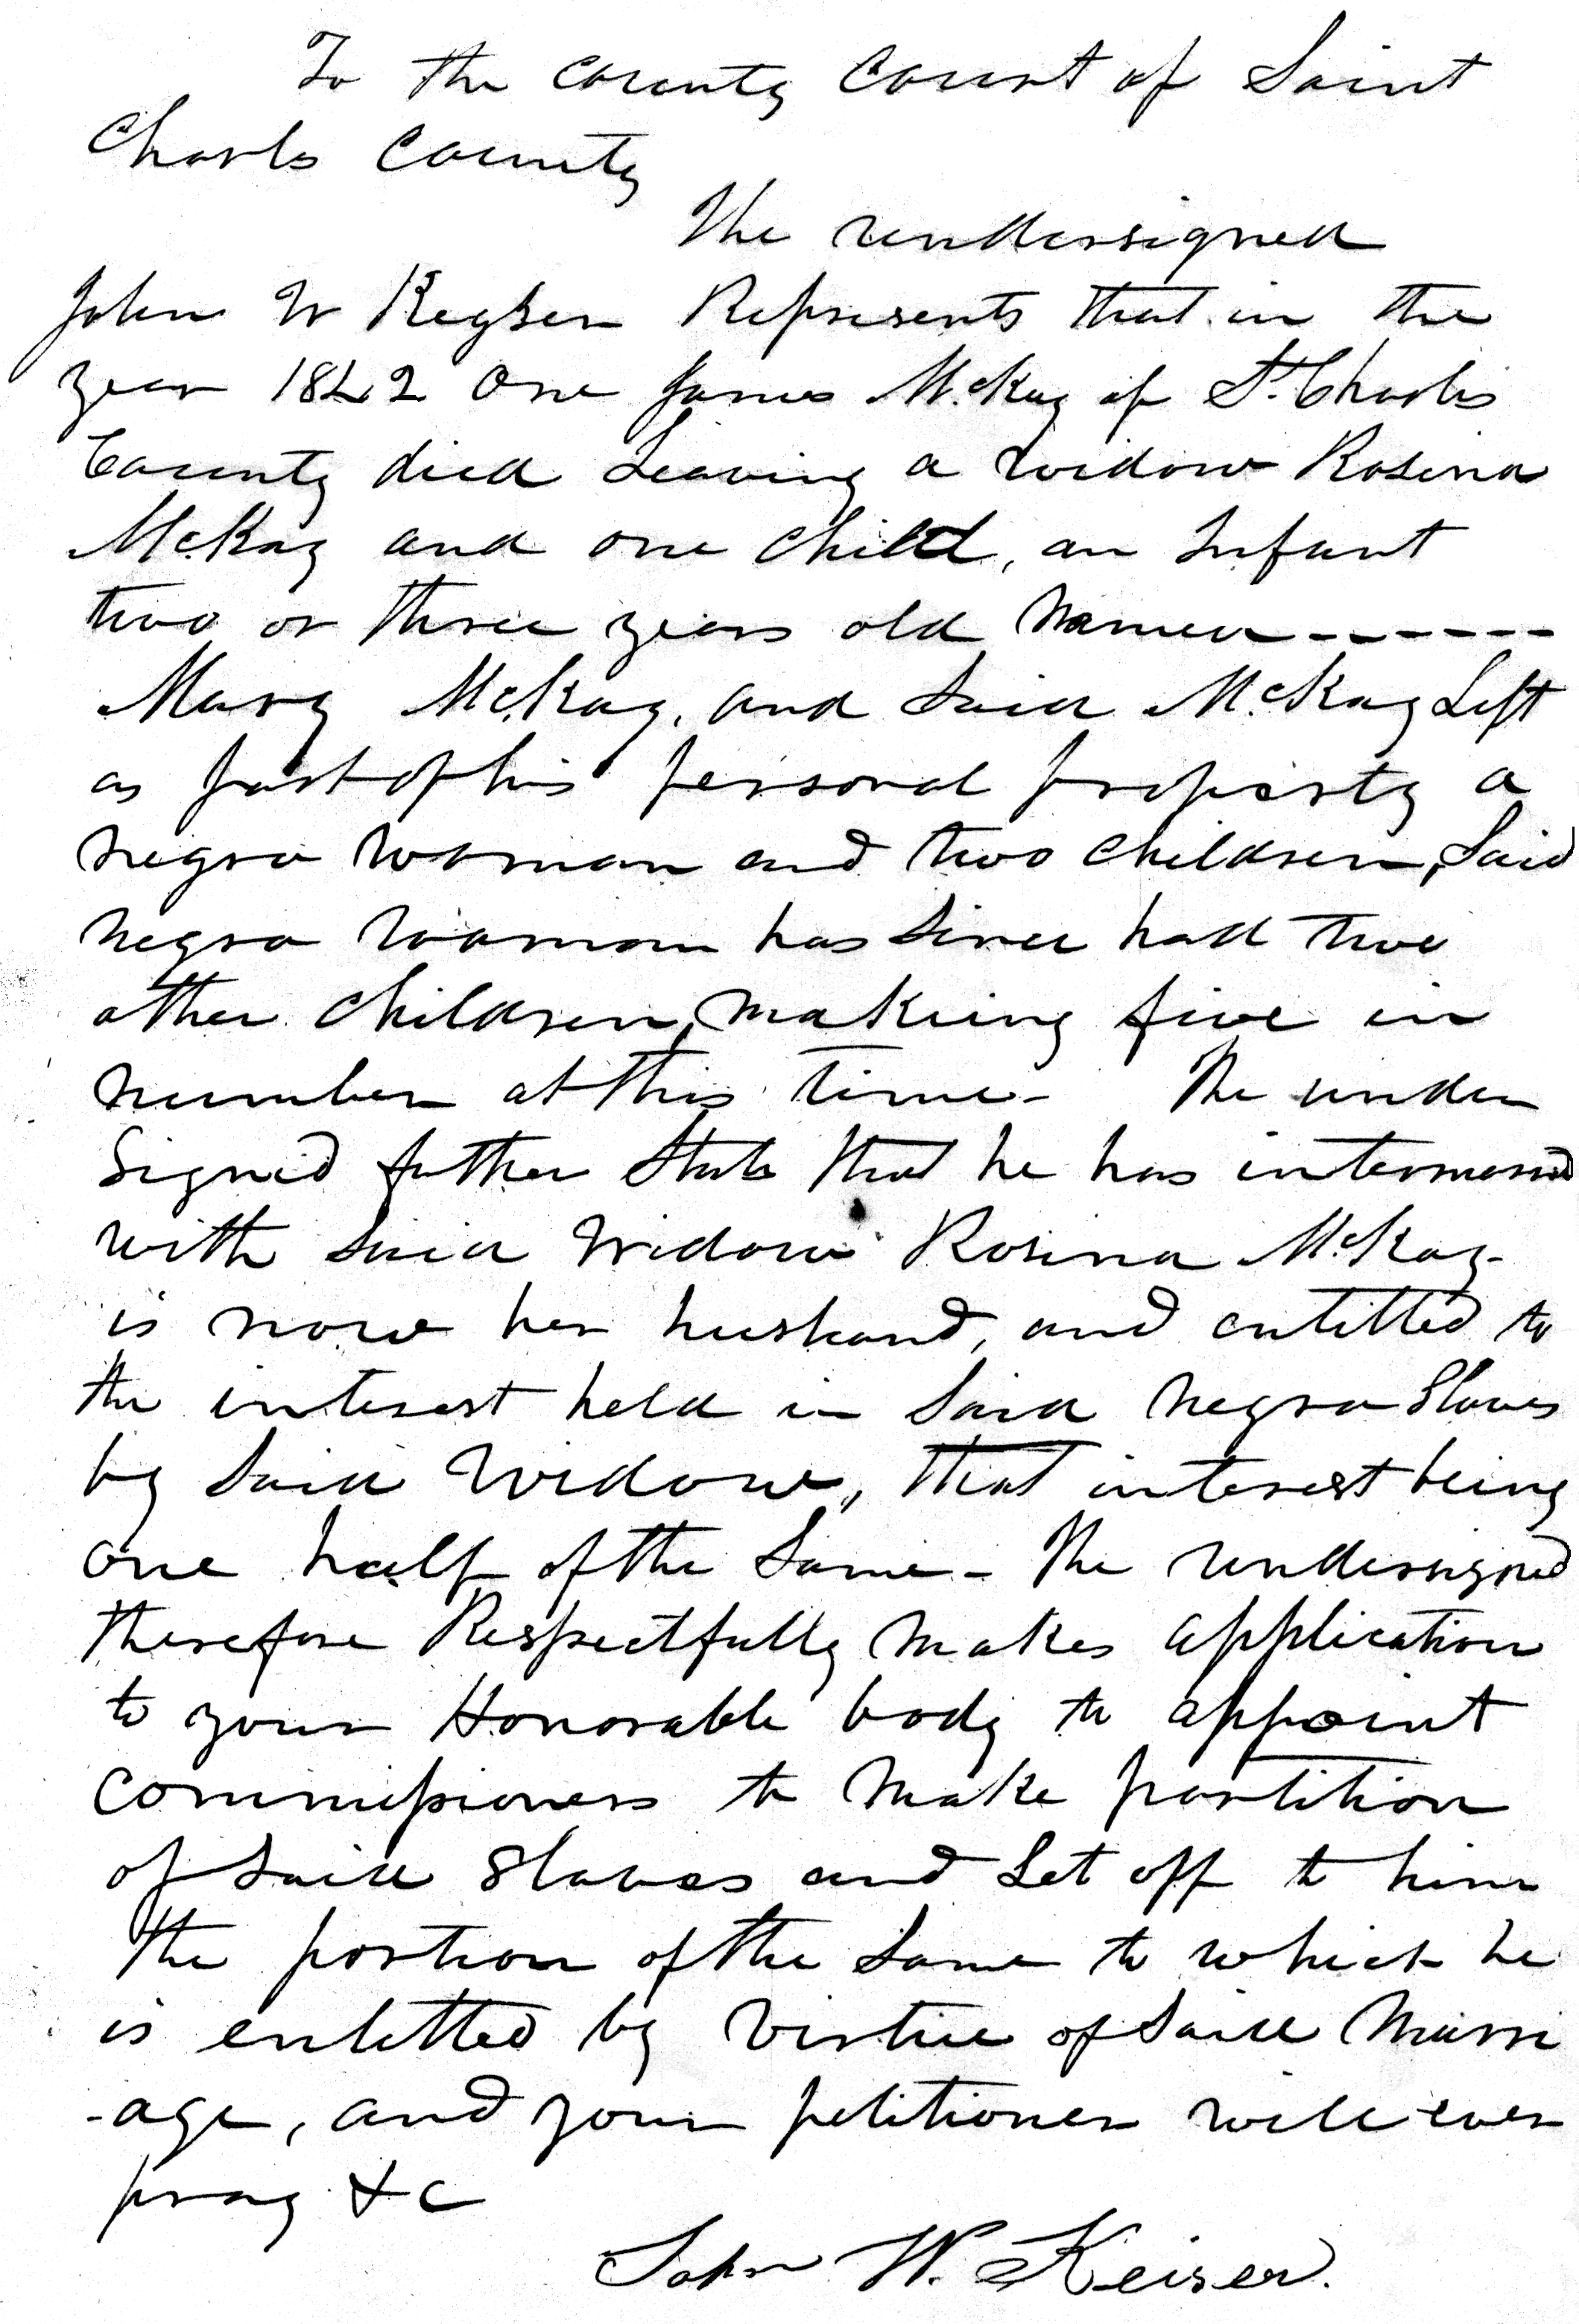 To the County Court of Saint
Charles County
The undersigned
John W Keyser Represents that in the
year 1842 One James McKay of St. Charles
County died Leaving a widow Rosina
McKay and one child, an Infant
two or three years old Named ------
Mary McKay, and Said McKay Left
as part of his personal property a
negro woman and two children, Said
negro woman has Since had two
other children, making five in
number at this time - The under
Signed futher State that he has intermarried
with Said Widow Rosina McKay -
is now her husband, and entitled to
the interest held in Said negro Slaves
by Said Widow, that interest being
one half of the Same - The undersigned
therefore Respectfully makes application
to your Honorable body to appoint
Commissioners to make partition
of Said Slaves and Set off to him
the portion of the Same to which he
is entitled by Virtue of Said Marri
-age, and your petitioner will ever
pray &c
John W. Keiser.